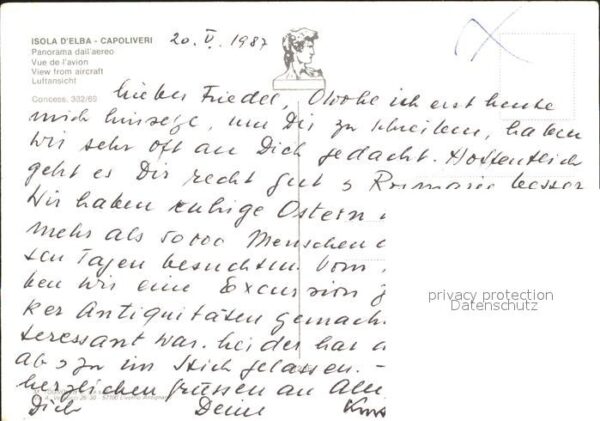 ISOLA D'ELBA - CAPOLIVERI
Panorama dall'aereo
Vue de l'avion
View from aircraft
Luftansicht
Concess. 332/65
20. V. 1987
Lieber Friedel, Obwohl ich erst heute
mich hinsetze, um Dir zu schreiben, haben
wir sehr oft an Dich gedacht. Hoffentlich
geht es Dir recht gut & Rosmarie besser
Wir haben ruhige Ostern
mehr als 50000 Menschen
sen Tagen besuchten. Vom
ben wir eine Excursion
ker Antiquitäten gemach
teressant war. Leider hat
ab & zu im Stich gelassen. -
herzlichen grüssen an Alle
Dich Deine
privacy protection
Datenschutz